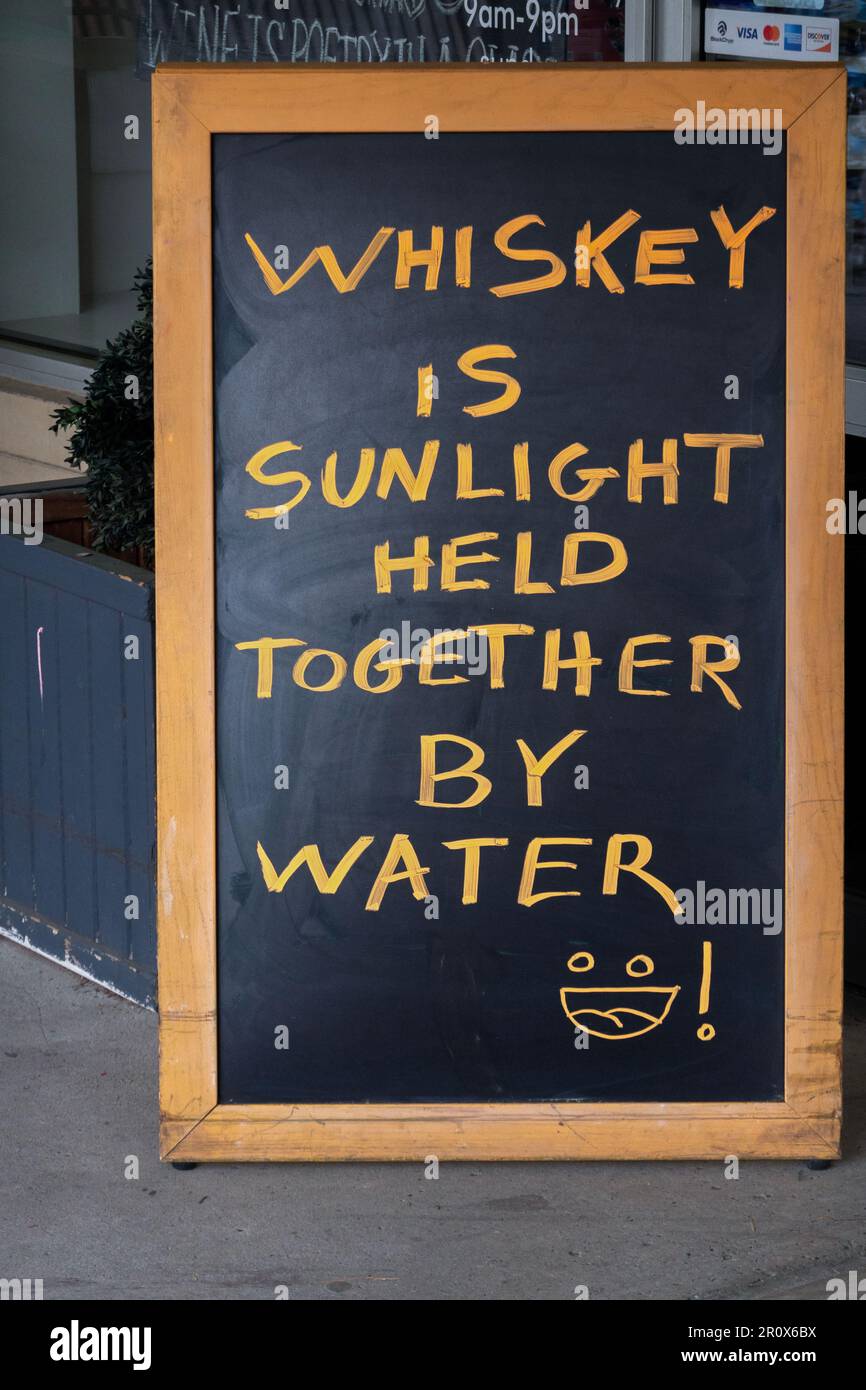 9am-9pm
WINE IS POETRY IN A
VISA
DISCOVER
WHISKEY
IS
SUNLIGHT
HELD
TOGETHER
BY
WATER
!
alamy
Image ID: 2R0X6BX
www.alamy.com